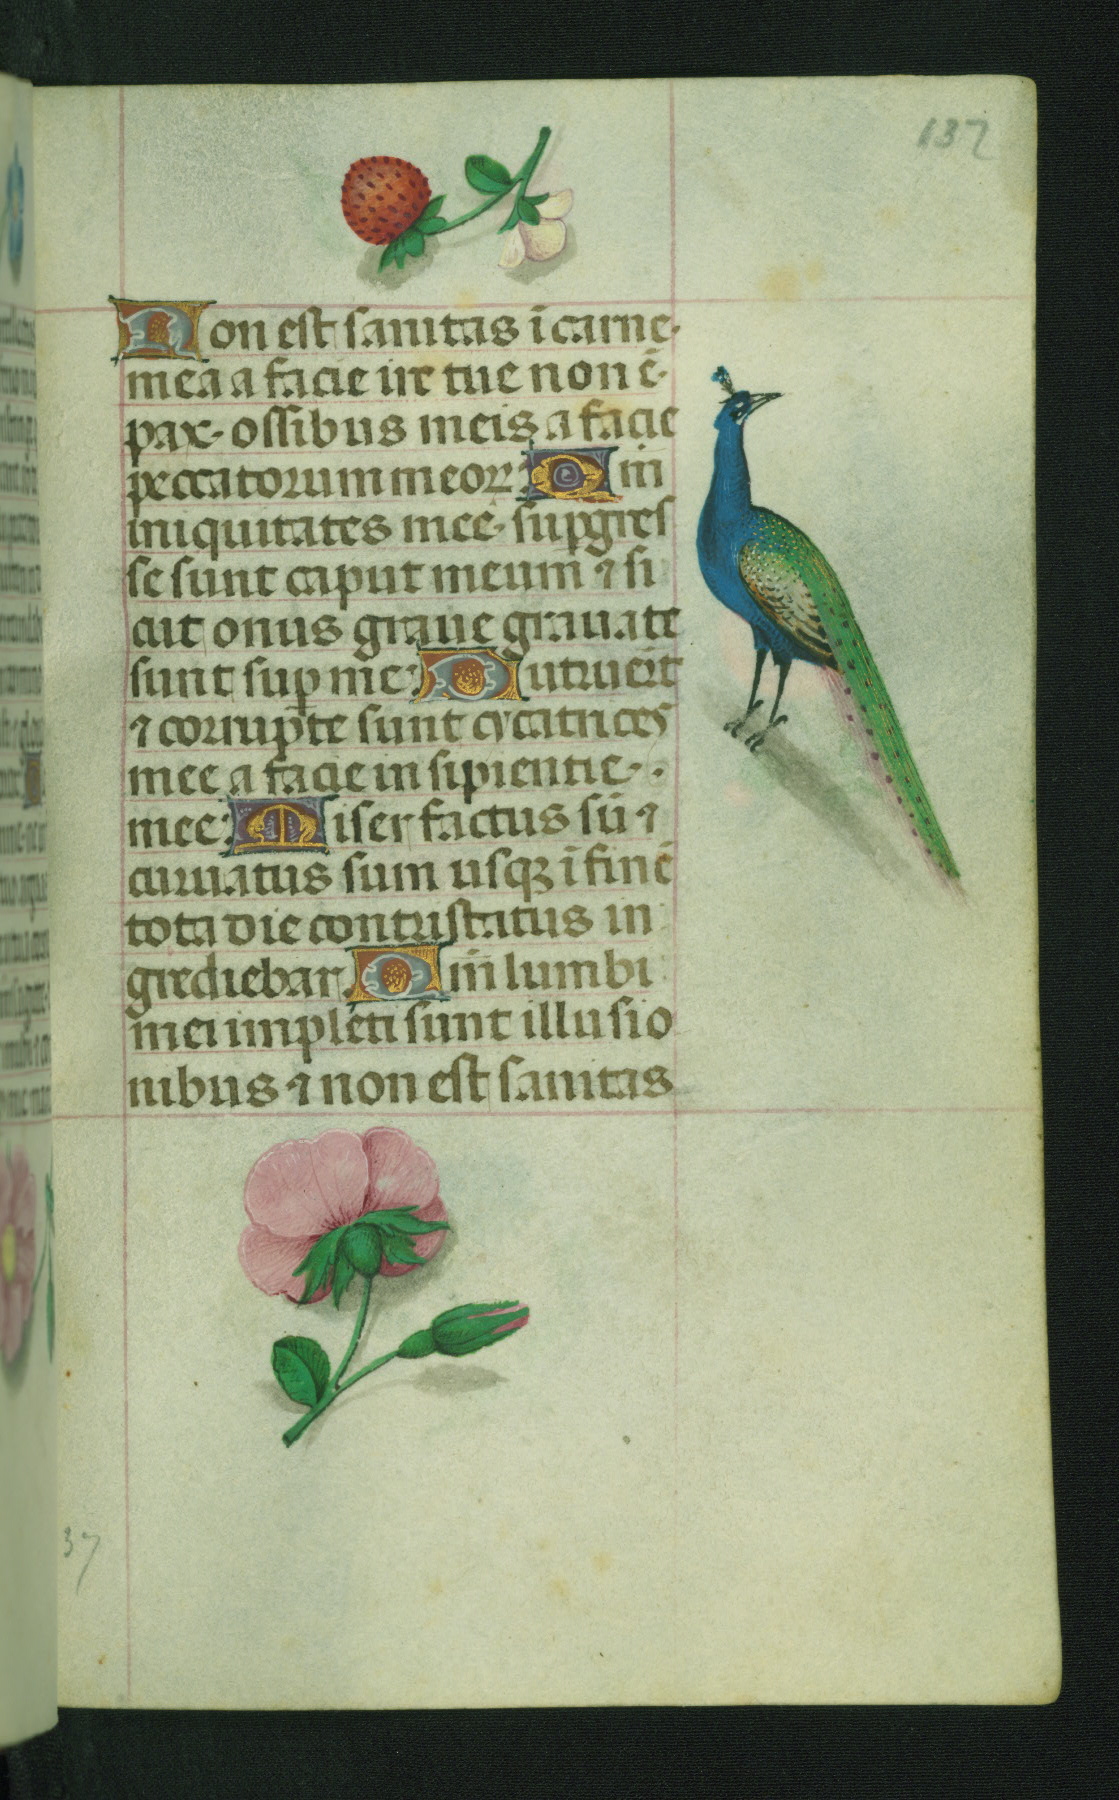 137
Non est sanitas ī carne·
mea a facie ire tue non ē·
pax· ossibus meis a facie
peccatorum meorꝝ: Qm̄
iniquitates mee· supgres
se sunt caput meum ⁊ si
cut onus graue grauate
sunt suꝑ me: Putruert̄
⁊ corrupte sunt cycatrices
mee a facie insipientie··
mee: Miser factus sū ⁊
curuatus sum usqꝫ ī finē
tota die contristatus in
grediebar: Qm̄ lumbi
mei impleti sunt illusio
nibus ⁊ non est sanitas
37